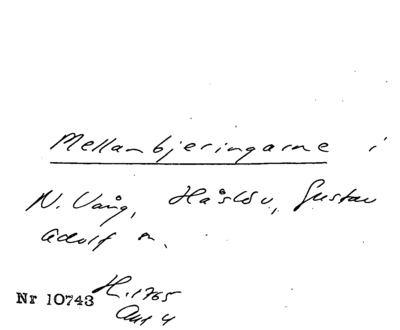 Mellanbjeringarne i
N. Vång, Håslöv, Gustav
Adolf m.
Nr 10743 H. 1765
Ant 4